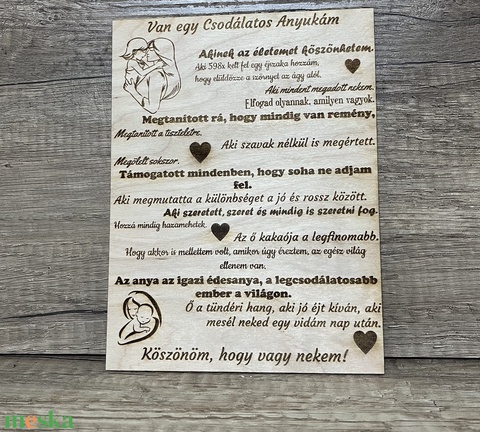 Van egy Csodálatos Anyukám
Akinek az életemet köszönhetem.
Aki 598x kelt fel egy éjszaka hozzám,
hogy elűldözze a szörnyet az ágy alól.
Aki mindent megadott nekem.
Elfogad olyannak, amilyen vagyok.
Megtanított rá, hogy mindig van remény,
Megtanított a tiszteletre.
Aki szavak nélkül is megértett.
Megölelt sokszor.
Támogatott mindenben, hogy soha ne adjam
fel.
Aki megmutatta a különbséget a jó és rossz között.
Aki szeretett, szeret és mindig is szeretni fog.
Hozzá mindig hazamehetek.
Az ő kakaója a legfinomabb.
Hogy akkor is mellettem volt, amikor úgy éreztem, az egész világ
ellenem van.
Az anya az igazi édesanya, a legcsodálatosabb
ember a világon.
Ő a tündéri hang, aki jó éjt kíván, aki
mesél neked egy vidám nap után.
Köszönöm, hogy vagy nekem!
meska